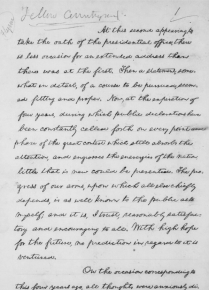 Fellow Countrymen: 1
At this second appearing to
take the oath of the presidential office, there
is less occasion for an extended address than
there was at the first. Then a statement, some-
what in detail, of a course to be pursued, seemed
fitting and proper. Now, at the expiration of
four years, during which public declarations have
been constantly called forth on every point and
phase of the great contest which still absorbs the
attention, and engrosses the energies of the nation
little that is new could be presented. The pro-
gress of our arms, upon which all else chiefly
depends, is as well known to the public as to
myself; and it is, I trust, reasonably satisfac-
tory and encouraging to all. With high hope
for the future, no prediction in regard to it is
ventured.
On the occasion corresponding to
this four years ago, all thoughts were anxiously di-